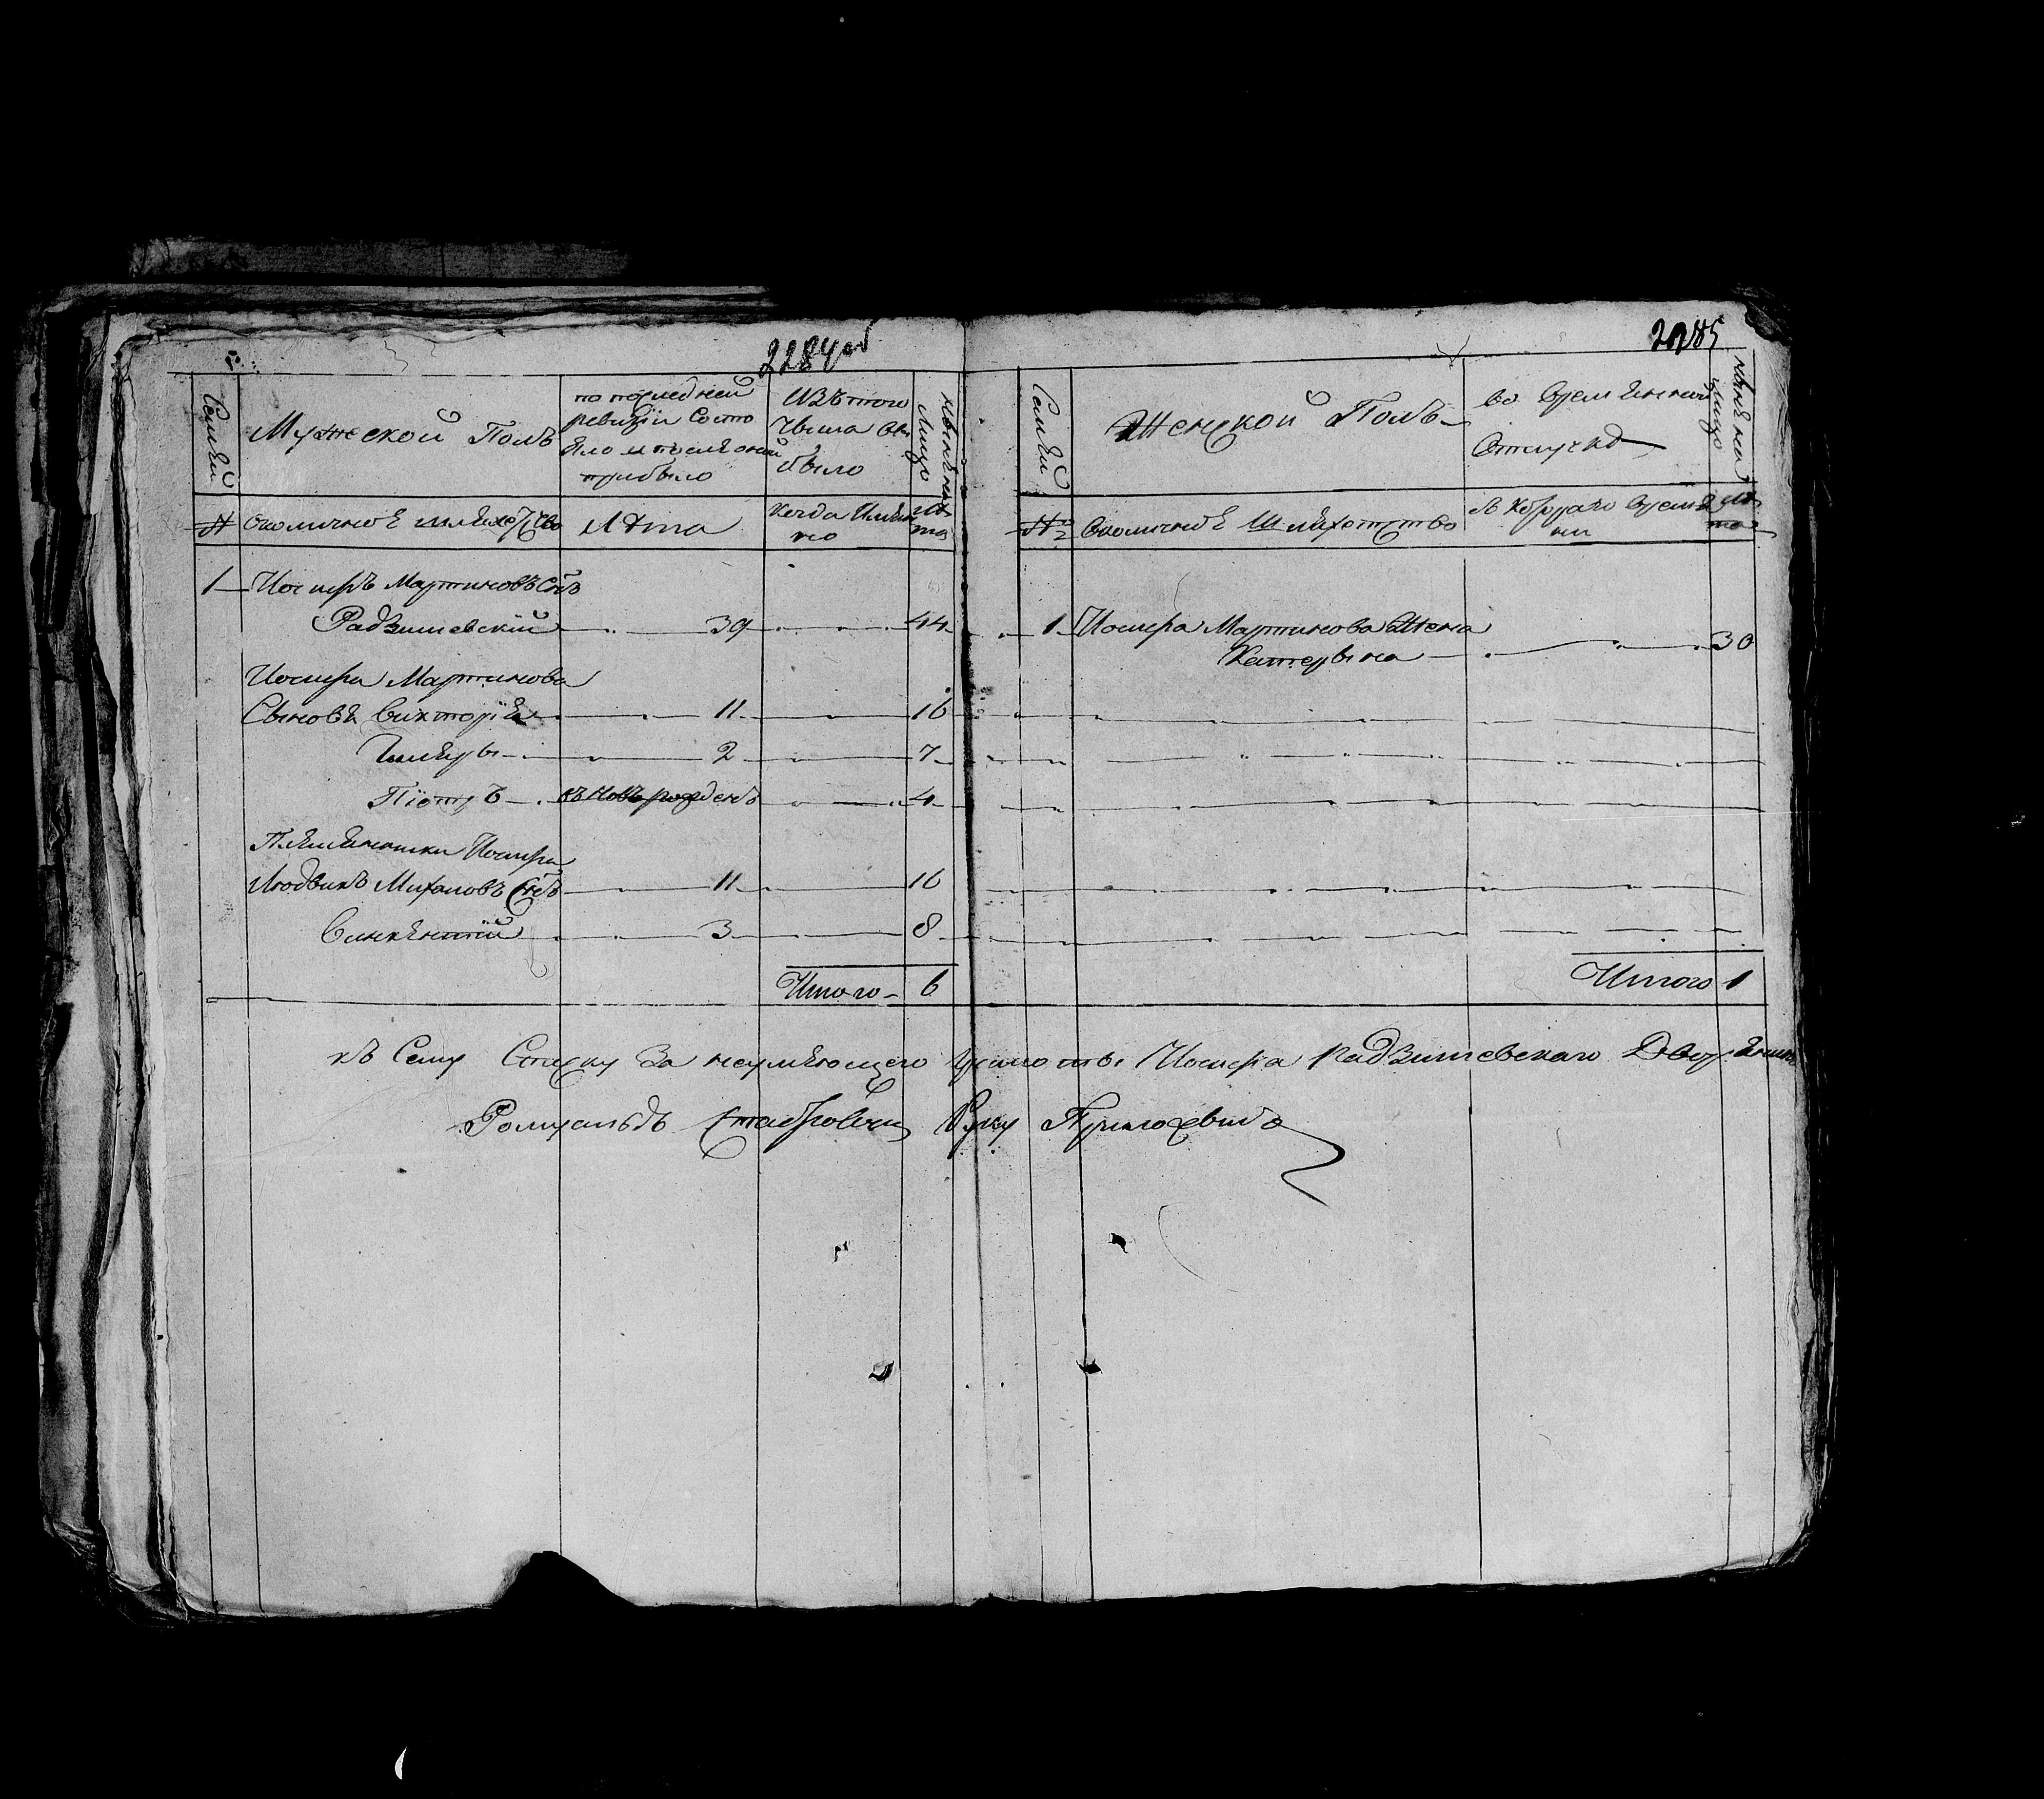 2284об
2285
Семьи
Мужеской Полъ
по последней
ревизіи состо
яло и после оной
прибыло
Изъ того
Числа вы
было
Ныне на
Лицо
№
околичноѣ шляхетство
Лѣта
Когда Имян
но
Лѣ
та
1 Иосифъ Мартиновъ Сынъ
Радзишевскій 39 44
Иосифа Мартинова
Сыновя Викторій 11 16
2 7
Піотръ новърожденъ 4
Племянники Иосифа
Людвикъ Михаловъ Сынъ 11 16
Викентій 3 8
Итого 6
Семьи
Женской Полъ
во Времянной
Отлучкѣ
ныне на
лицо
№
Околичноѣ Шляхетство
съ Которого Времѣ
ни
Лѣ
та
1 Иосифа Мартинова Жена
Катерына 30
Итого 1
къ Сему Списку За неумѣющего грамоты Иосифа Радзишевскаго Дворянинъ
Ромуальдъ Руку Приложилъ